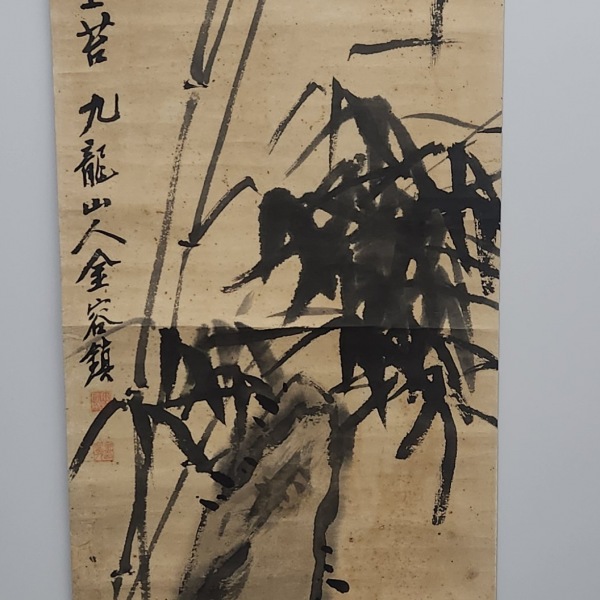 苔 九龍山人金容鎮